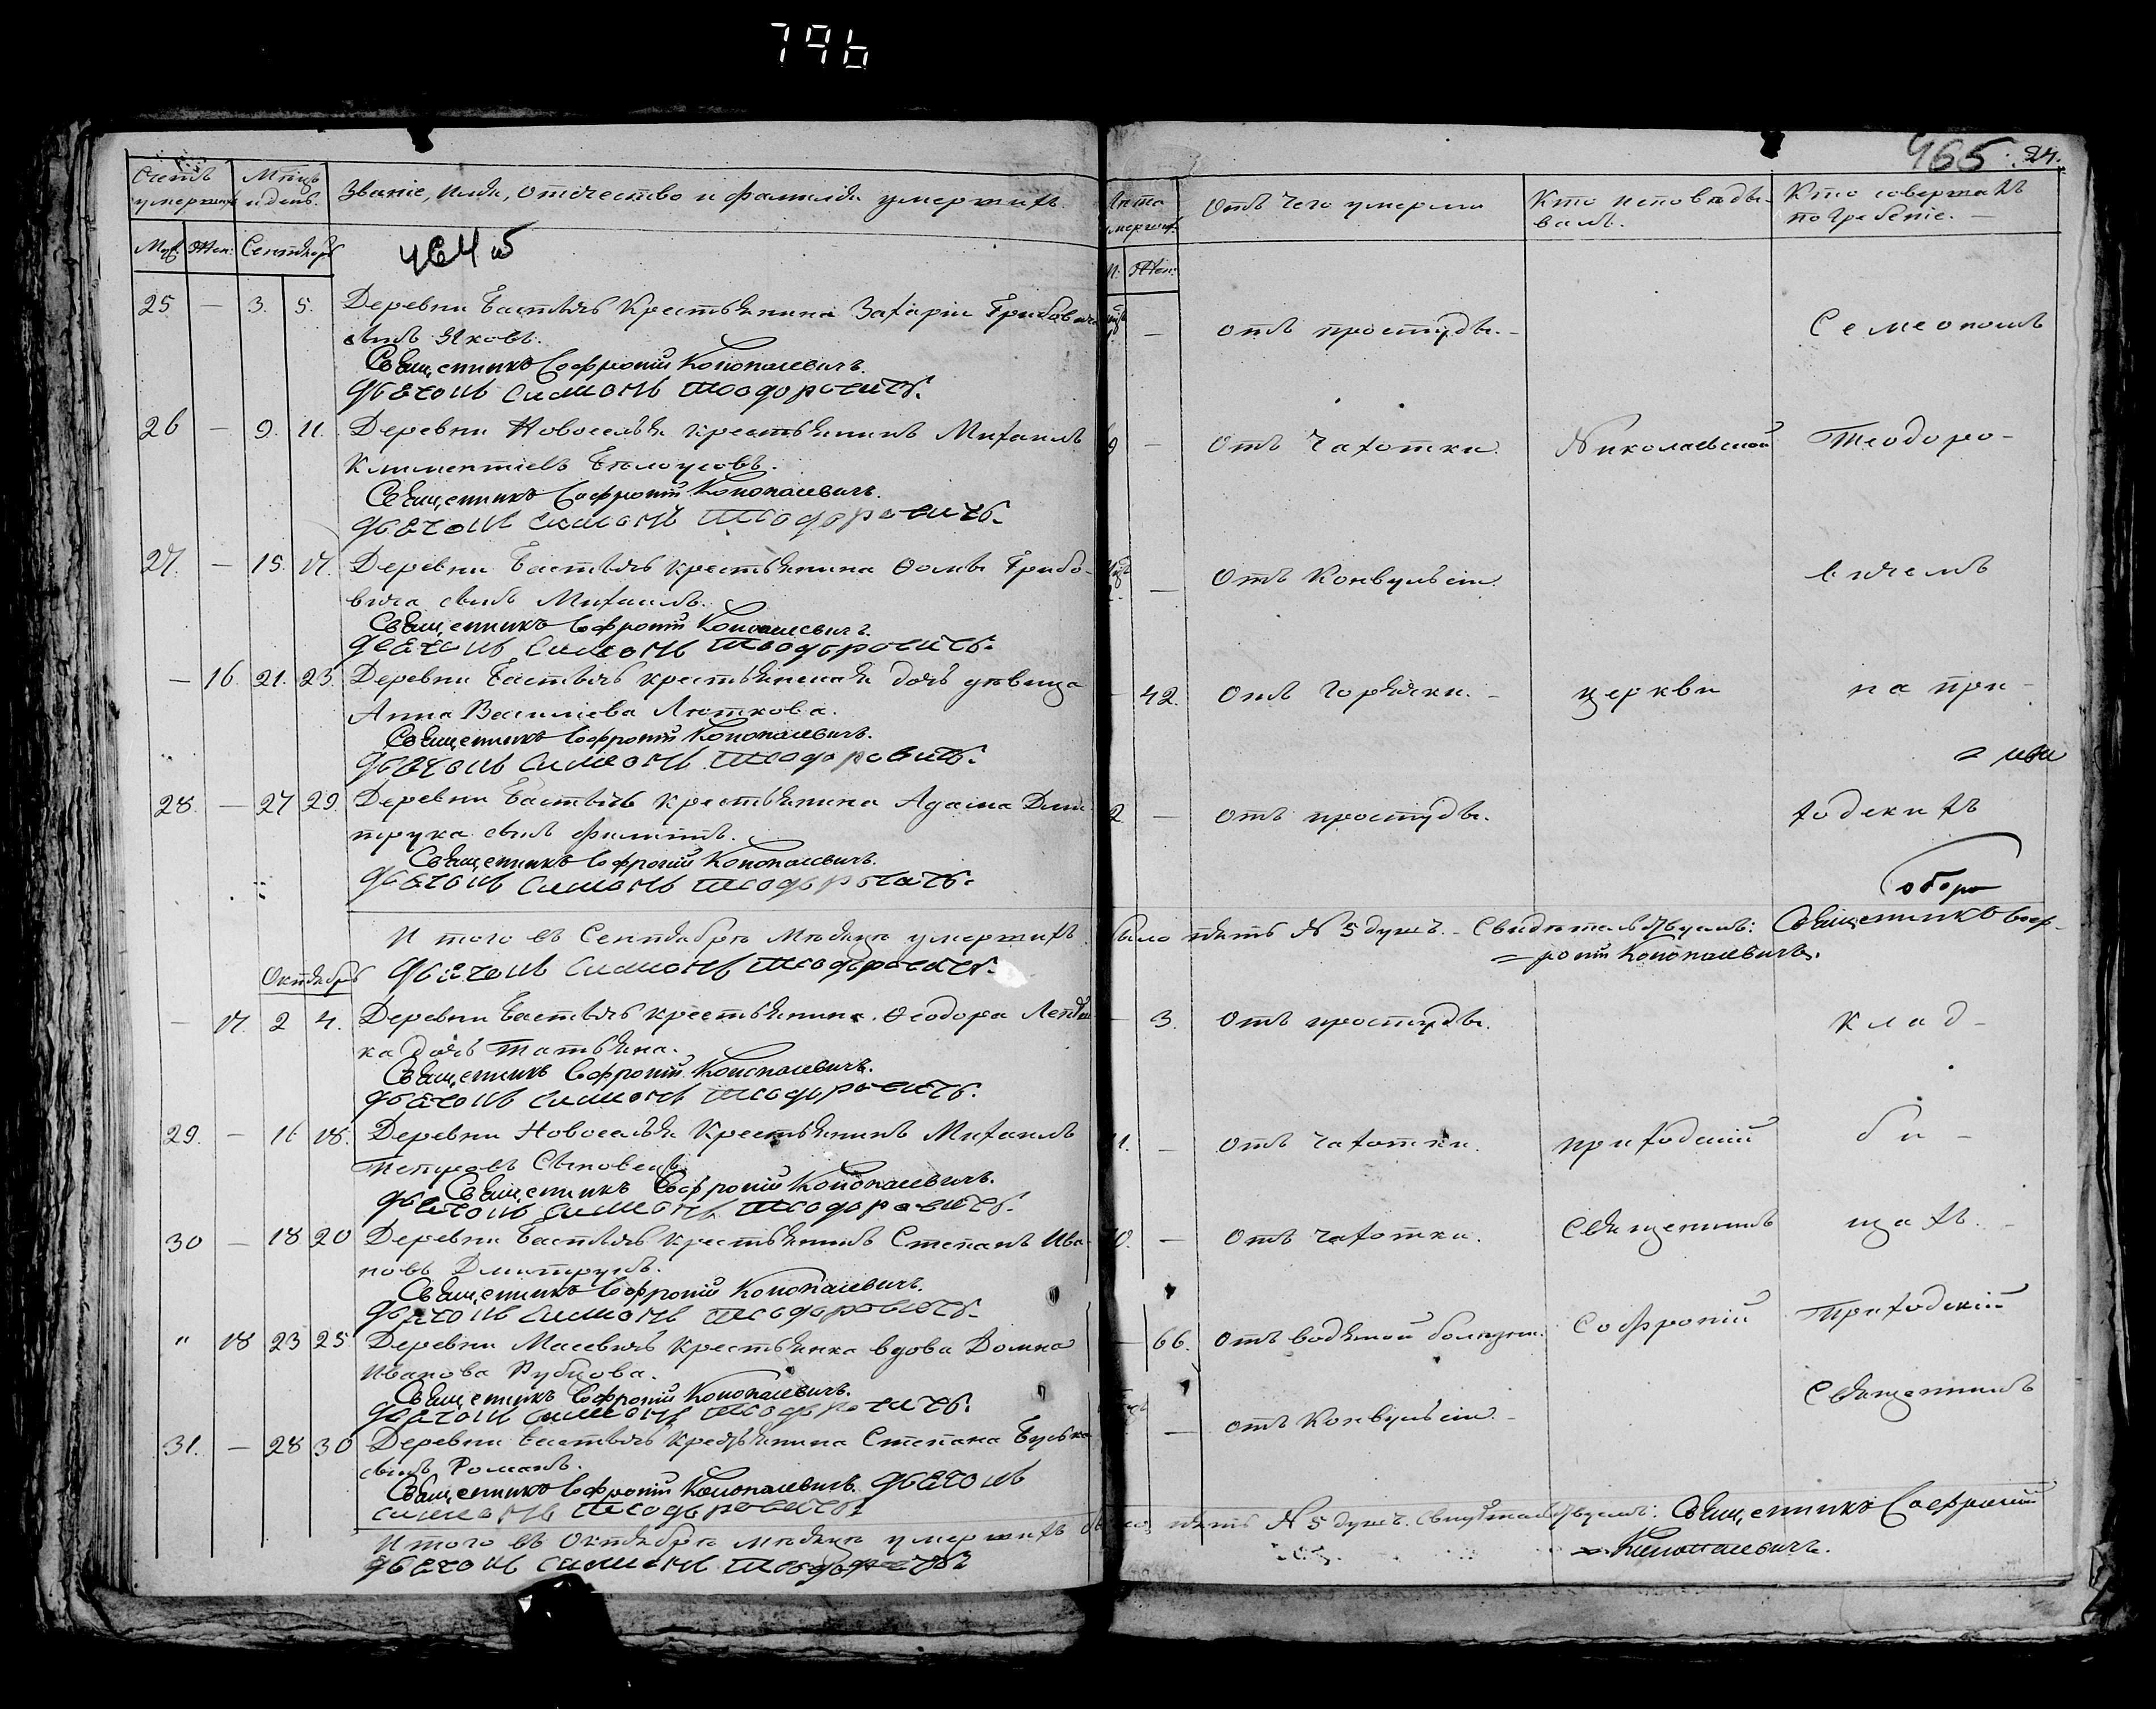 796
465. 24.
Счетъ умершихъ Мцъ и день. Званіе, имя, отчество и фамилія умершихъ.
Муж. Жен: Сентябрь
464 об
25 — 3. 5. Деревни Бастынь Крестьянина Захаріи Грибовича
сынъ Яковъ.
Священникъ Софроній Конопасевичъ.
Дьячокъ Симонъ Теодоровичъ.
26 — 9. 11. Деревни Новоселья Крестьянинъ Михаилъ
Климентіевъ Бѣлоусовъ.
Священникъ Софроній Конопасевичъ.
Дьячокъ Симонъ Теодоровичъ.
27. — 15. 17. Деревни Бастынь крестьянина Ѳомы Грибо-
вича сынъ Михаилъ.
Священникъ Софроній Конопасевичъ.
Дьячокъ Симонъ Теодоровичъ.
— 16. 21. 23. Деревни Бастынь крестьянская дочь дѣвица
Анна Василіева Люткова.
Священникъ Софроній Конопасевичъ.
Дьячокъ Симонъ Теодоровичъ.
28. — 27 29. Деревни Бастынь крестьянина Адама Дми-
трука сынъ Филиппъ.
Священникъ Софроній Конопасевичъ.
Дьячокъ Симонъ Теодоровичъ.
И того въ Сентябрѣ Мѣсяцѣ умершихъ
Дьячокъ Симонъ Теодоровичъ.
Октябрь
— 17. 2 4. Деревни Бастынь крестьянина Ѳеодора
ка дочь Татьяна.
Священникъ Софроній Конопасевичъ.
Дьячокъ Симонъ Теодоровичъ.
29. — 16 18. Деревни Новоселья Крестьянинъ Михаилъ
Священникъ Софроній Конопасевичъ.
Дьячокъ Симонъ Теодоровичъ.
30 — 18 20 Деревни Бастынь Крестьянинъ Степанъ Ива-
новъ Дмитрукъ.
Священникъ Софроній Конопасевичъ.
Дьячокъ Симонъ Теодоровичъ.
" 18 23 25 Деревни Масевичь Крестьянка вдова Домна
Иванова Рубцова.
Священникъ Софроній Конопасевичъ.
Дьячокъ Симонъ Теодоровичъ.
31. — 28 30 Деревни Бастынь Крестьянина Степана Булька
сынъ Романъ.
Священникъ Софроній Конопасевичъ. Дьячокъ
Симонъ Теодоровичъ
И того въ Октябрѣ мѣсяцѣ умершихъ
Дьячокъ Симонъ Теодоровичъ
Лѣта умершихъ. Отъ чего умерли Кто исповѣды-
валъ. Кто совершалъ
погребеніе.
Жен:
— отъ простуды. — Семеономъ
— Отъ Чахотки. Николаевской Теодоро-
— Отъ Конвульсіи. вичемъ
42. Отъ Горячки. — церкви на при-
= ими
2 — Отъ простуды. ходскихъ
было пять № 5 душъ. — Свидѣтельствуемъ: Священникъ Соф-
= роній Конопасевичъ.
— 3. Отъ простуды. клад-
— Отъ чахотки. приходскій би-
— Отъ чахотки. Священникъ щахъ. —
— 66. Отъ водяной болѣзни. Софроній Приходскій
Священникъ
— отъ Конвульсіи. —
пять № 5 душъ. Свидѣтельствуемъ: Священникъ Софроній
= Конопасевичъ.